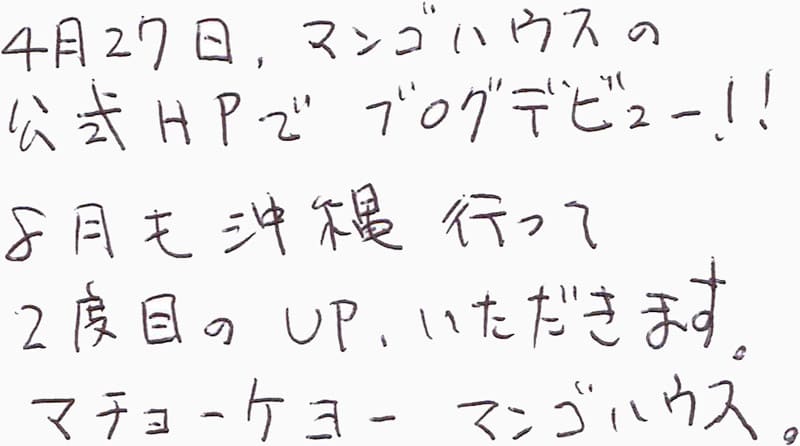 4月27日、マンゴハウスの
公式HPで ブログデビュー!!
8月も沖縄 行って
2度目のUP、いただきます。
マチョーケヨー マンゴハウス。